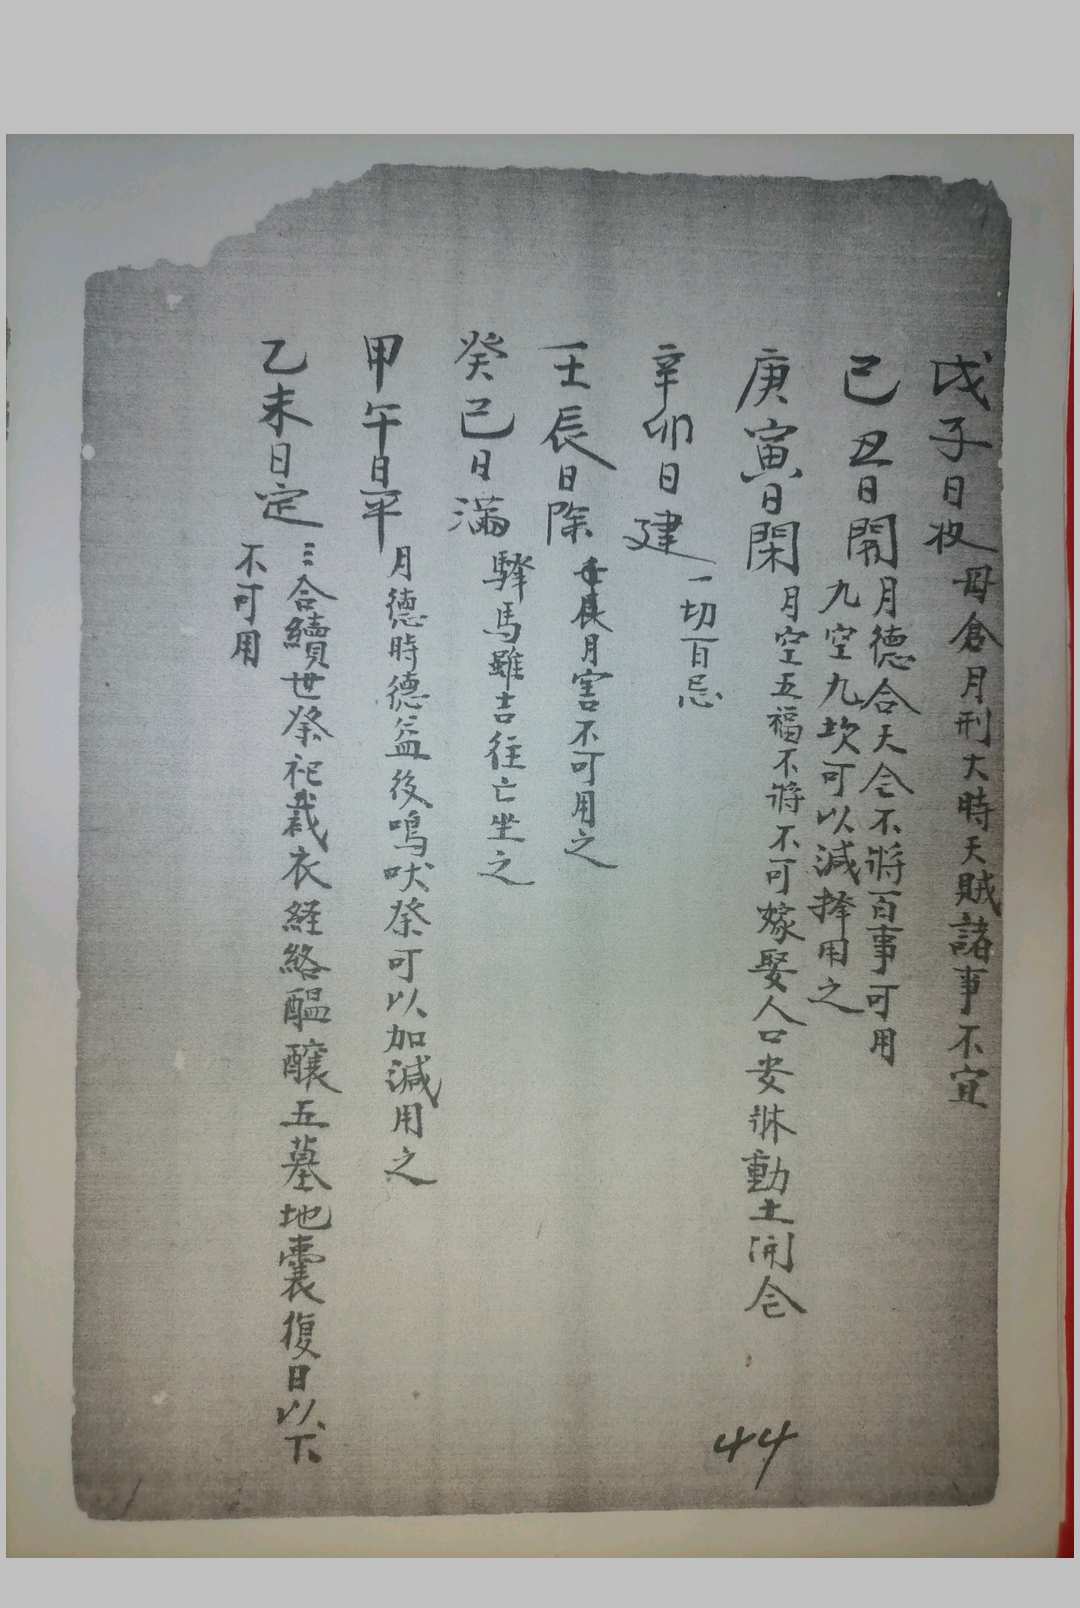 戊子日收 母倉月刑大時天賊諸事不宜
己丑日開 月德合天仓不將百事可用
九空九坎可以減擇用之
庚寅日閑 月空五福不將不可嫁娶人口安牀動土開仓
辛卯日建 一切百忌
壬辰日除 月害不可用之
癸巳日滿 驛馬雖吉往亡坐之
甲午日平 月德時德益後鳴吠祭可以加減用之
乙未日定 三合續世祭祀裁衣経絡醖釀五墓地囊復日以下
不可用
44